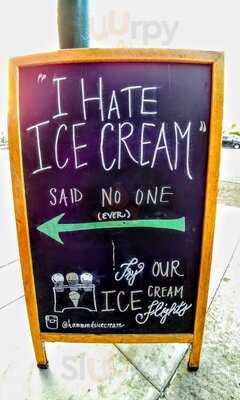 Sluurpy
"I HATE
ICE CREAM"
SAID NO ONE
(EVER)
Try OUR
ICE CREAM
flights
@hammondsicecream
Sluurpy